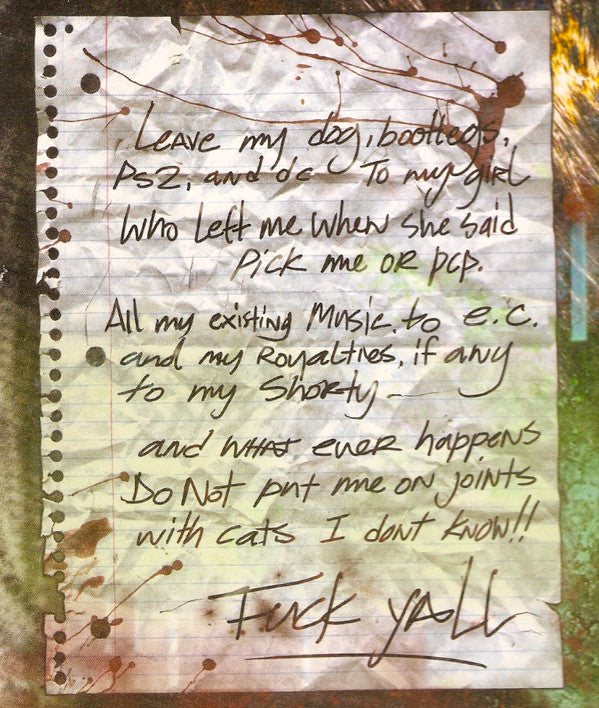 Leave my dog, bootlegs,
Ps2, and dc To my girl
Who Left me When she said
Pick me OR pcp.
All my existing Music to e.c.
and my Royalties, if any
to my Shorty -
and what ever happens
Do Not put me on joints
with cats I dont know!!
Fuck yall